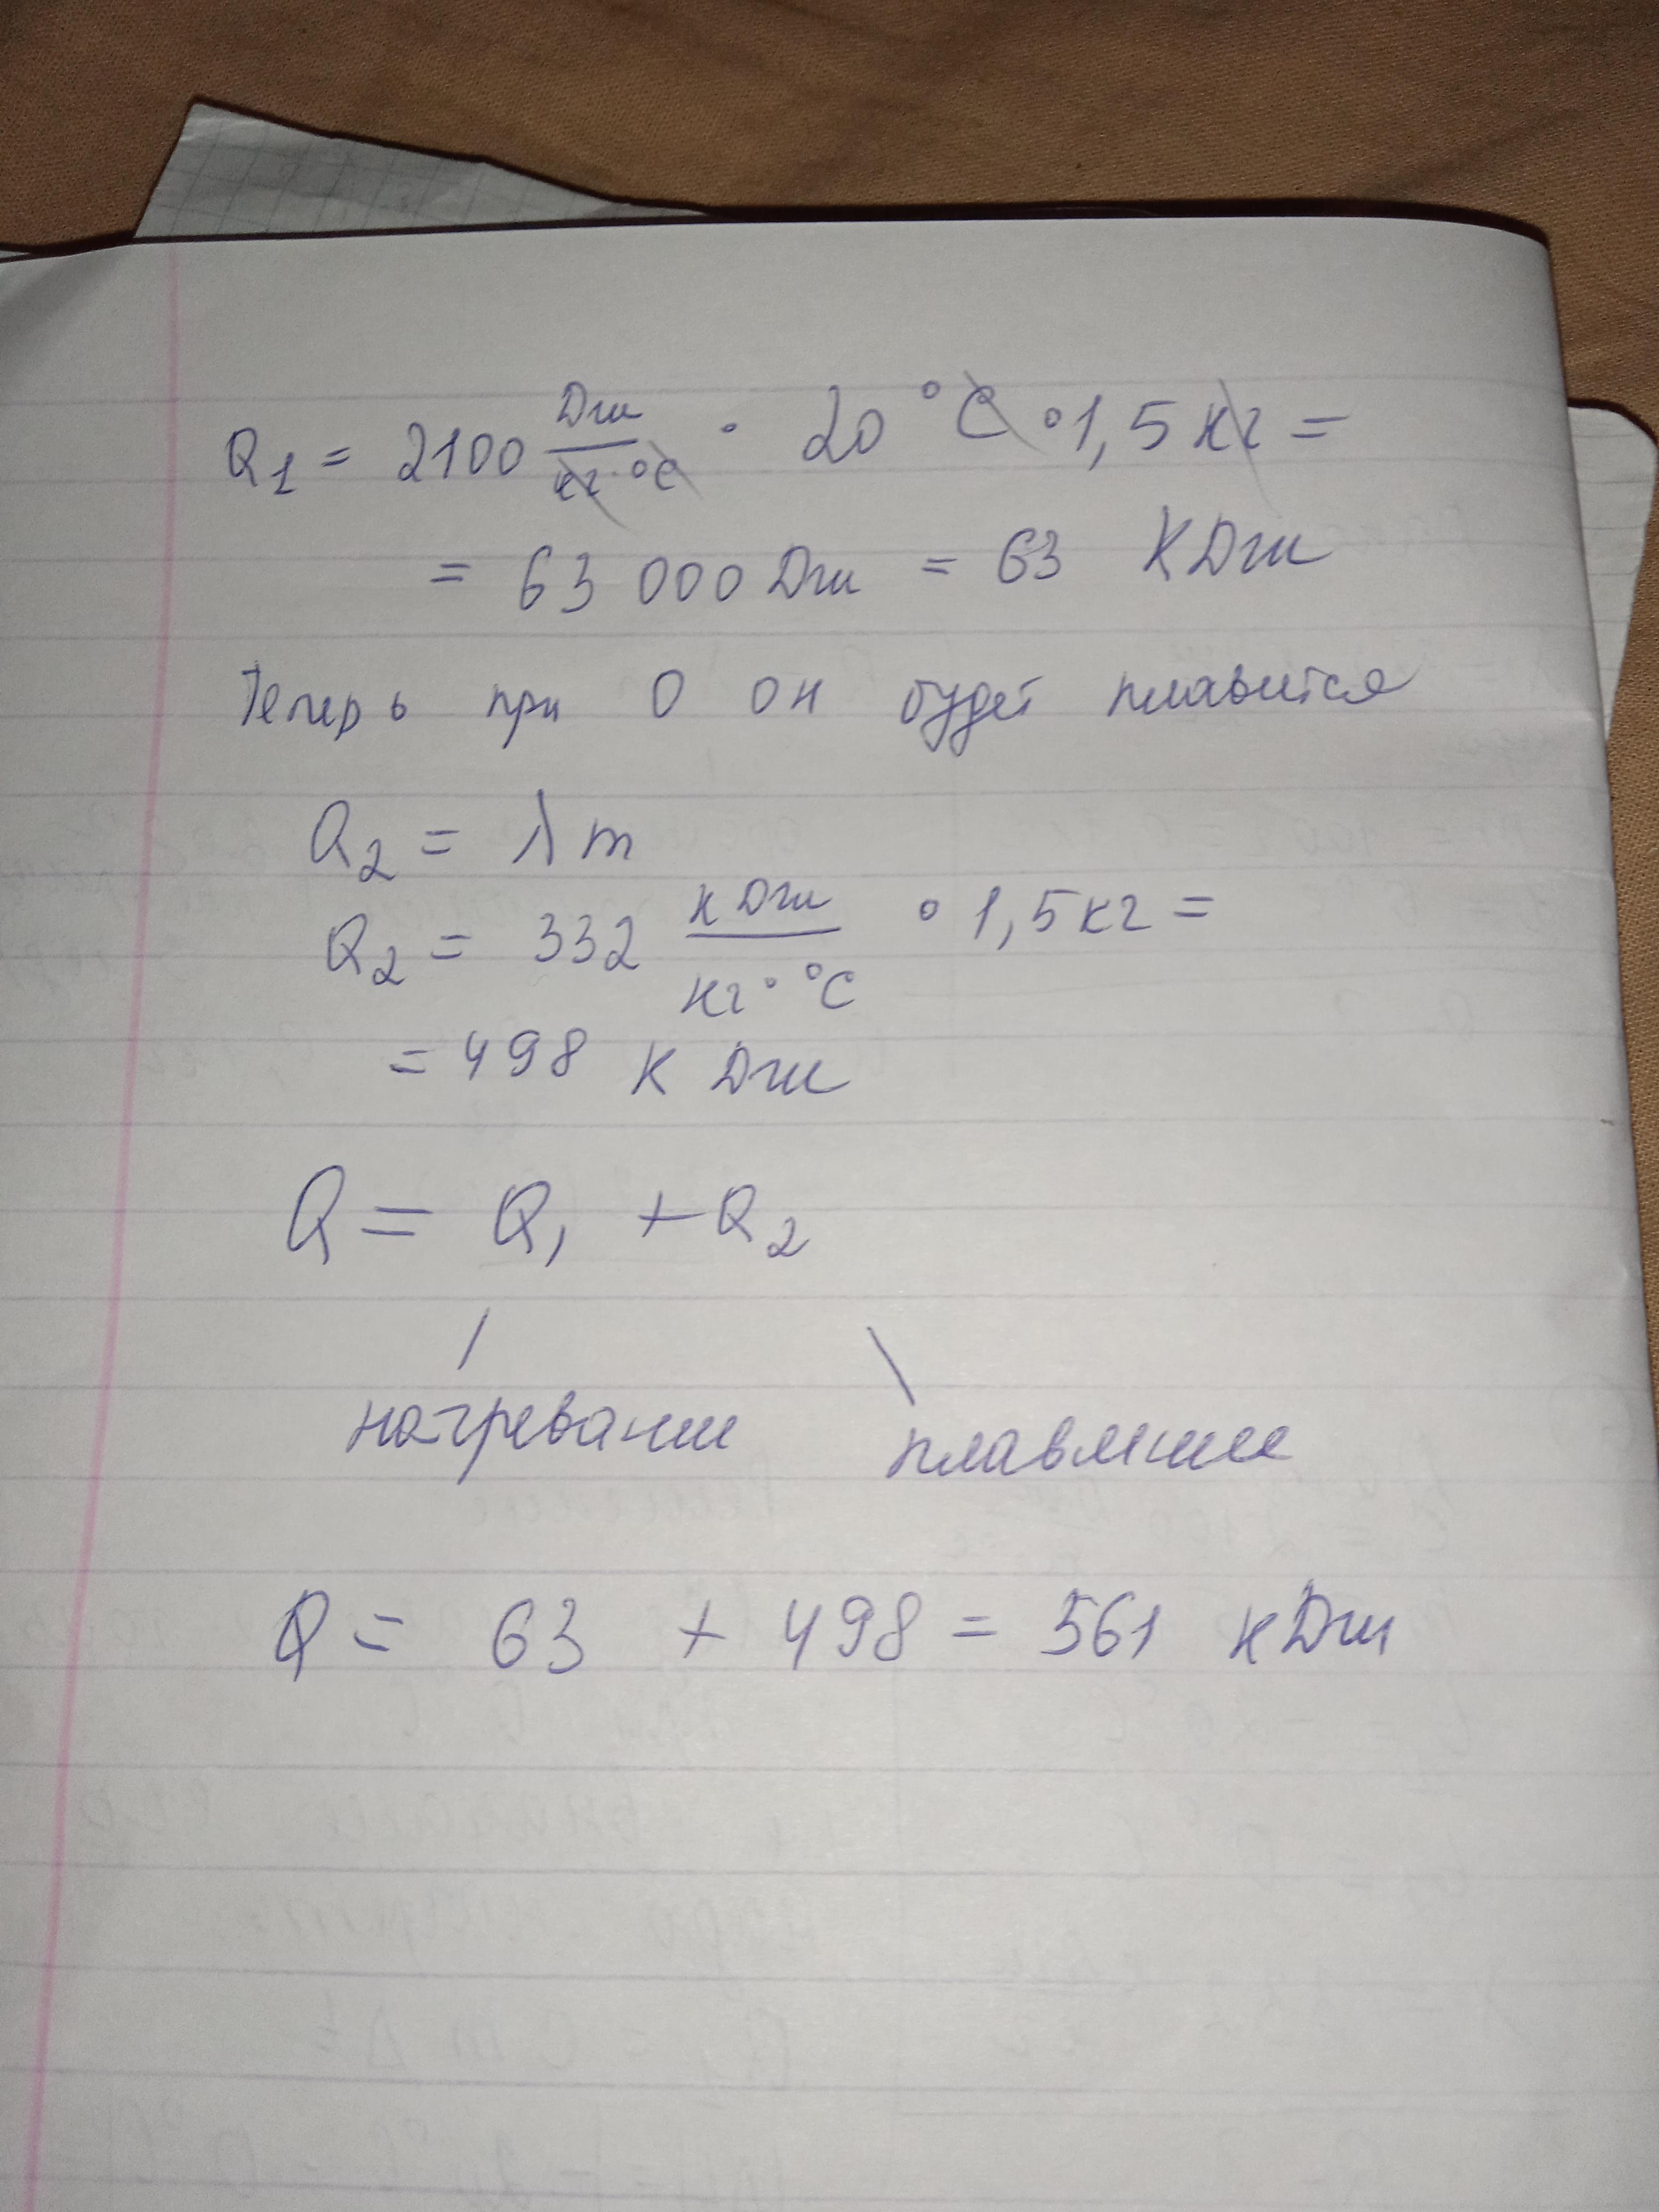 Q₁ = 2100 Дж/кг·°C · 20 °C · 1,5 кг =
= 63 000 Дж = 63 КДж
Теперь при 0 он будет плавится
Q₂ = λm
Q₂ = 332 кДж/кг·°C · 1,5 кг =
= 498 кДж
Q = Q₁ + Q₂
нагревание плавление
Q = 63 + 498 = 561 кДж